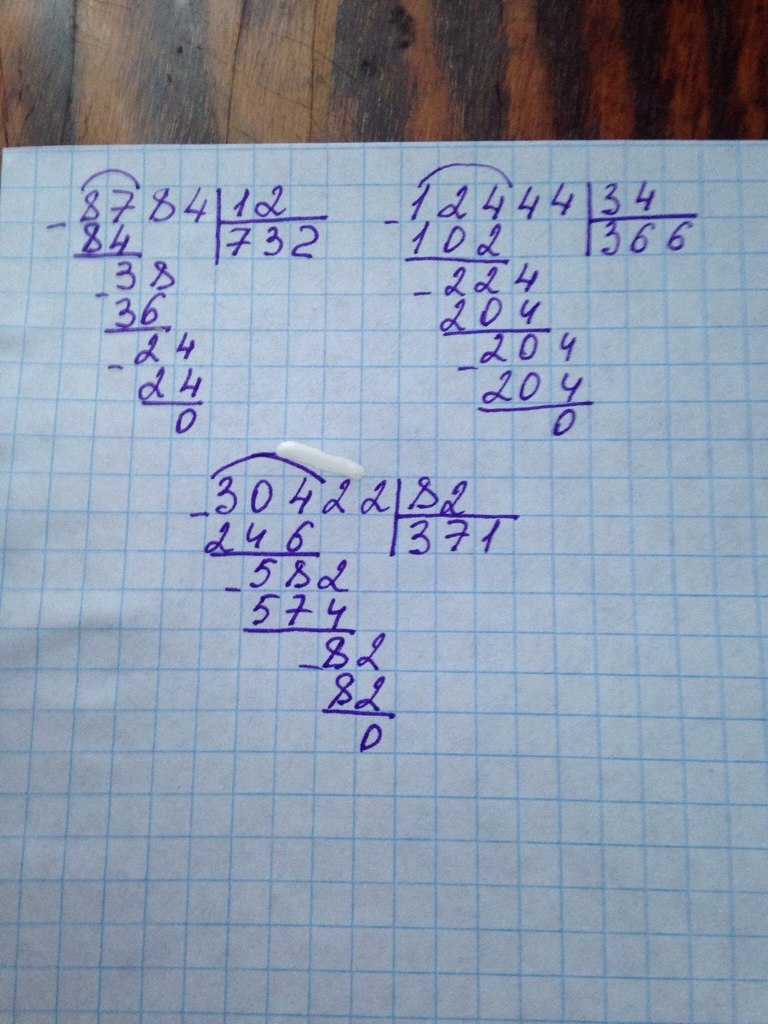 - 8784 | 12
84 | 732
- 38
36
- 24
24
0
- 12444 | 34
102 | 366
- 224
204
- 204
204
0
- 30422 | 82
246 | 371
- 582
574
- 82
82
0